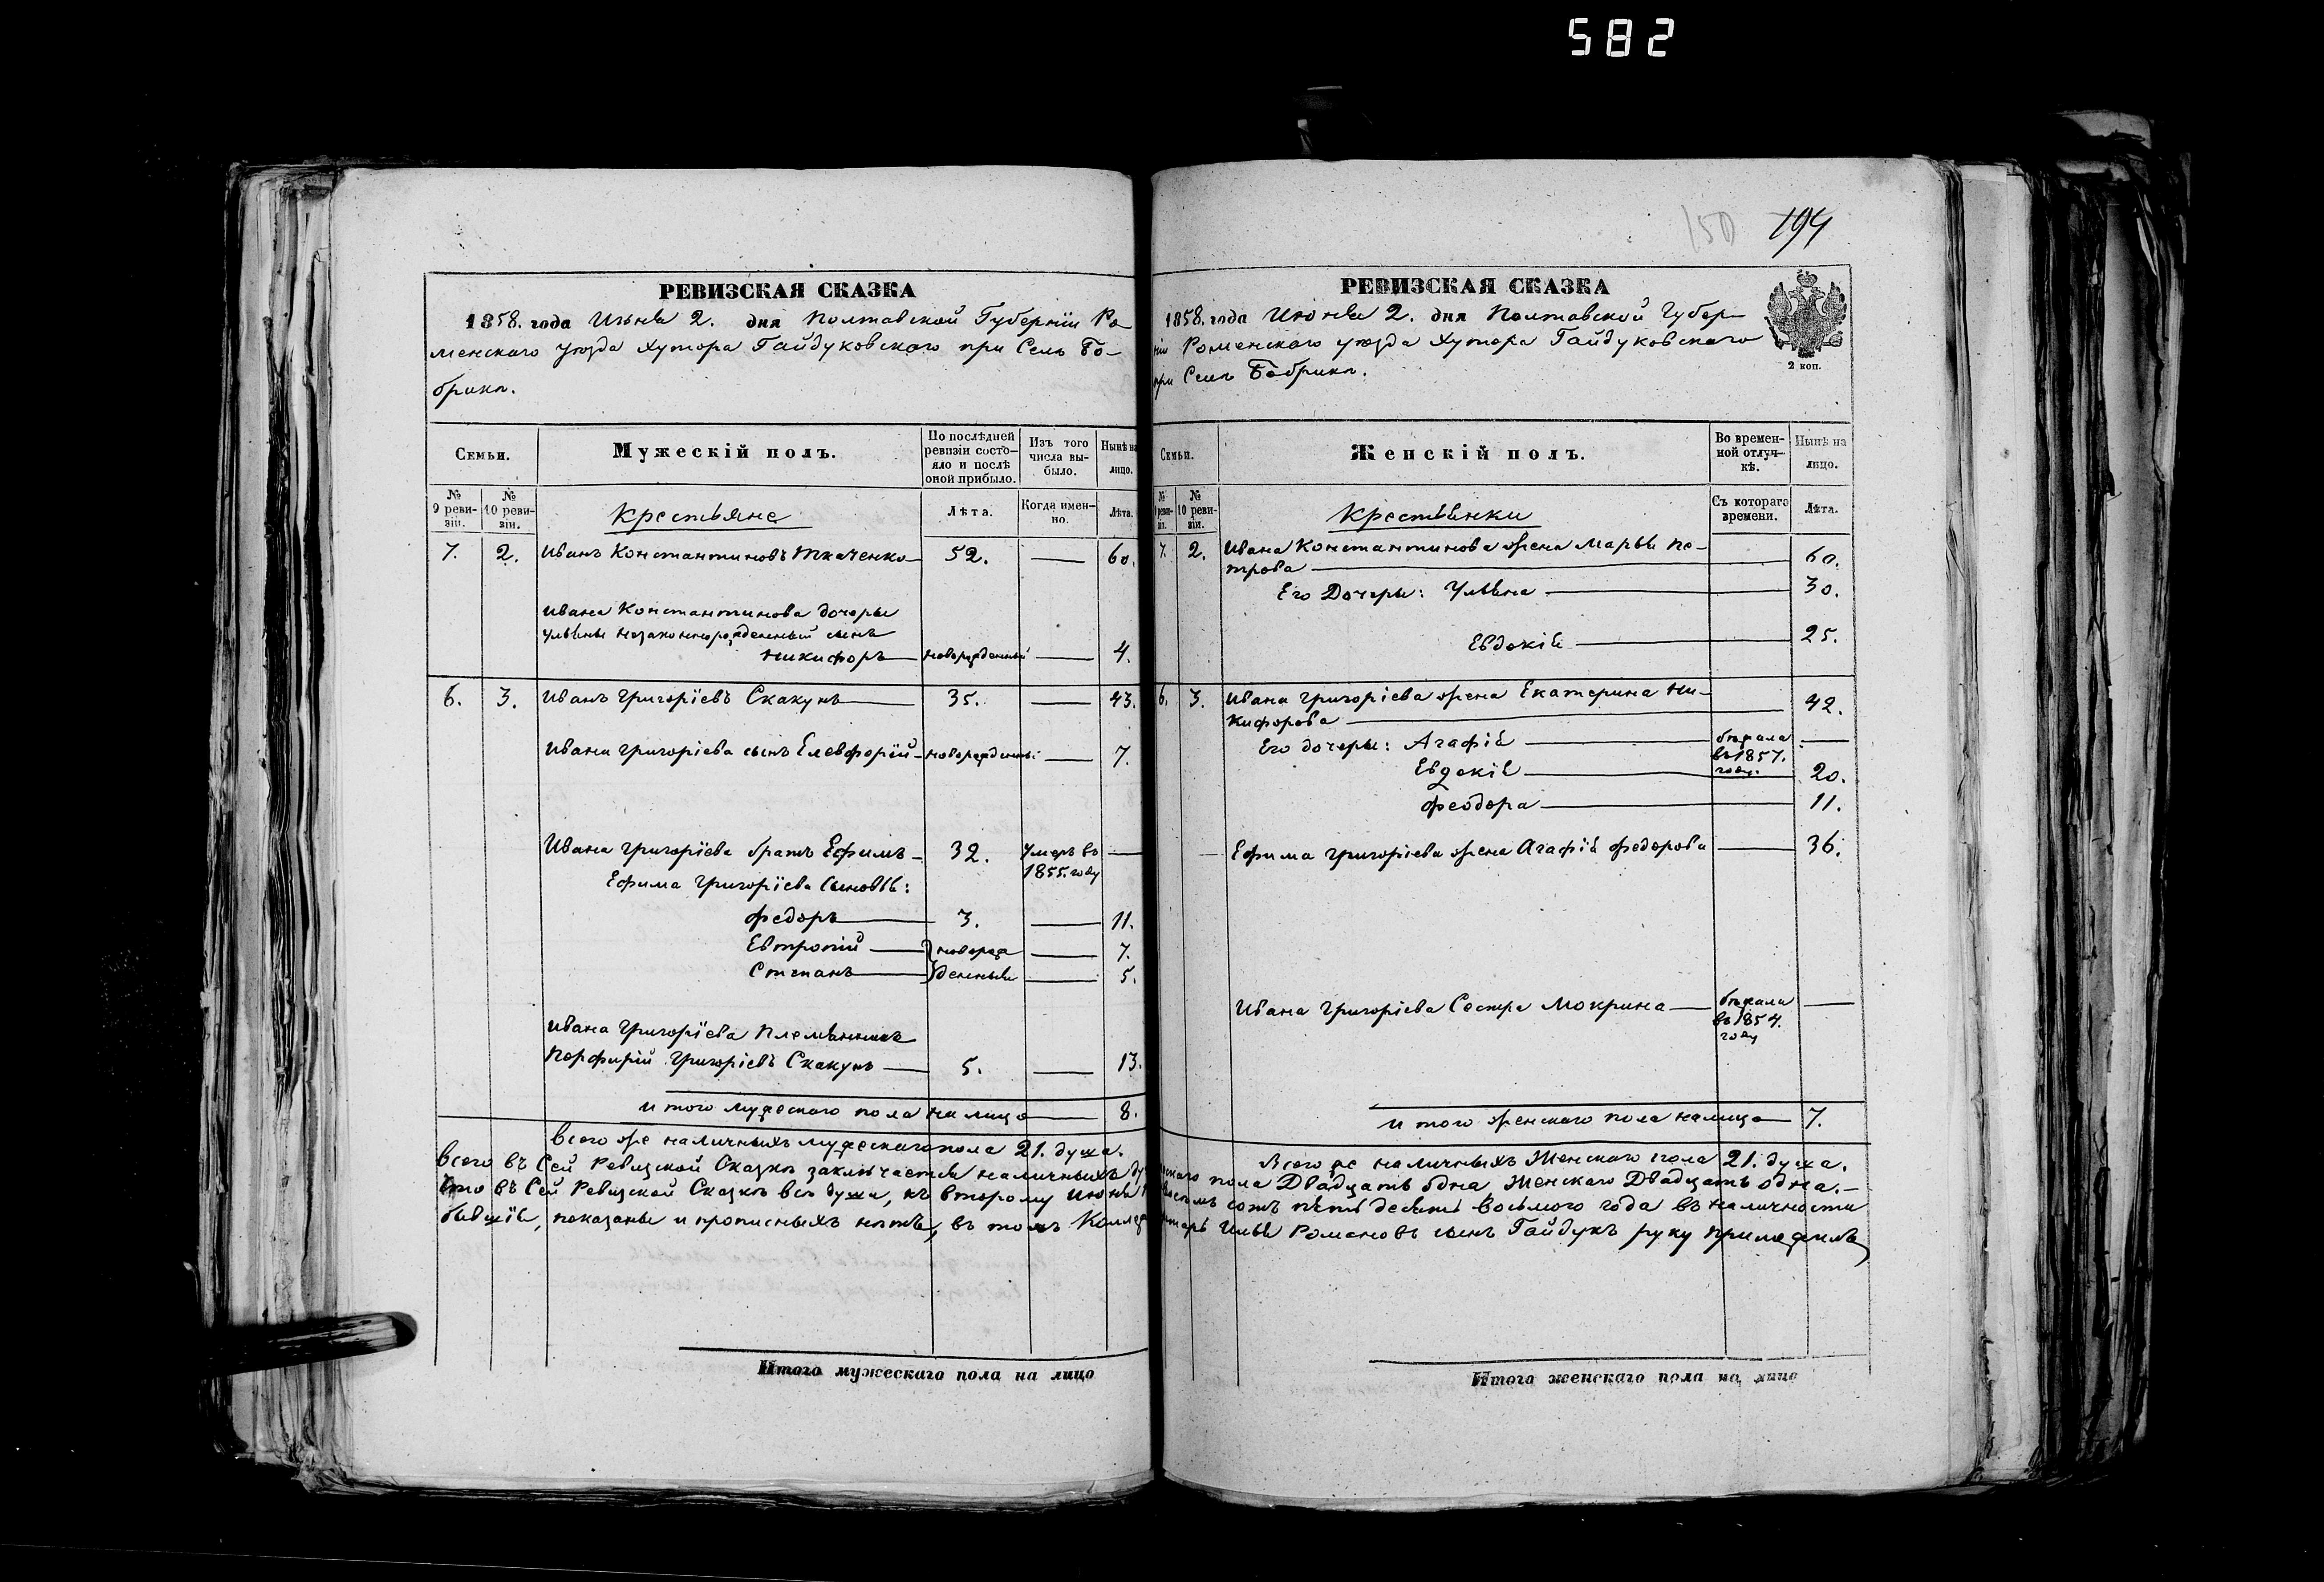 582
150 194
РЕВИЗСКАЯ СКАЗКА
1858. года Июня 2. дня Полтавской Губерніи Ро-
менскаго уѣзда Хутора Гайдуковскаго при Селѣ Бо-
брикѣ.
Семьи.
Мужескій полъ.
По послѣдней ревизіи состо-яло и послѣ оной прибыло.
Изъ того числа вы-было.
Нынѣ на лицо.
№ 9 реви-зіи.
№ 10 реви-зіи.
Крестьяне
Лѣта.
Когда имен-но.
Лѣта.
7. 2. Иванъ Константиновъ Ткаченко 52. — 60.
Ивана Константинова дочери
Ульяны незаконнорожденный сынъ
Никифоръ — новорожденный — 4.
6. 3. Иванъ Григоріевъ Скакунъ 35. — 43.
Ивана Григоріева сынъ Елевферій — новорожденный — 7.
Ивана Григоріева братъ Ефимъ — 32. Умеръ въ —
1855. году
Ефима Григоріева сыновья:
Федоръ — 3. — 11.
Евтропій — новорож — 7.
Степанъ — денныи — 5.
Ивана Григоріева Племянникъ
Порфирій Григоріевъ Скакунъ — 5. — 13.
И того мужескаго пола на лицо — 8.
Всего же наличныхъ мужескаго пола 21. душа.
Всего въ Сей Ревизской Сказкѣ заключается наличныхъ ду
Что въ Сей Ревизской Сказкѣ всѣ души, къ второму Июня
бывшіе, показаны и прописныхъ нѣтъ, въ томъ Коллеж
Итого мужескаго пола на лицо
РЕВИЗСКАЯ СКАЗКА
1858. года Июня 2. дня Полтавской Губер-
ніи Роменскаго уѣзда Хутора Гайдуковскаго
при Селѣ Бобрикѣ.
2 коп.
Семьи.
Женскій полъ.
Во времен-ной отлуч-кѣ.
Нынѣ на лицо.
№ 9 реви-зіи.
№ 10 реви-зіи.
Крестьянки
Съ котораго времени.
Лѣта.
7. 2. Ивана Константинова жена Марья Пе-
трова — 60.
Его Дочери: Ульяна — 30.
Евдокія — 25.
6. 3. Ивана Григоріева жена Екатерина Ни-
кифорова — 42.
Его дочери: Агафія — бѣжала —
въ 1857.
году.
Евдокія — 20.
Феодора — 11.
Ефима Григоріева жена Агафія Федорова — 36.
Ивана Григоріева Сестра Мокрина — бѣжала —
въ 1854.
году
И того женскаго пола налицо — 7.
Всего же наличныхъ Женскаго пола 21. душа.
жескаго пола Двадцать одна Женскаго Двадцать одна.—
восемь сотъ пятьдесятъ восьмого года въ наличности
Илья Романовъ сынъ Гайдукъ руку приложилъ
Итого женскаго пола на лицо